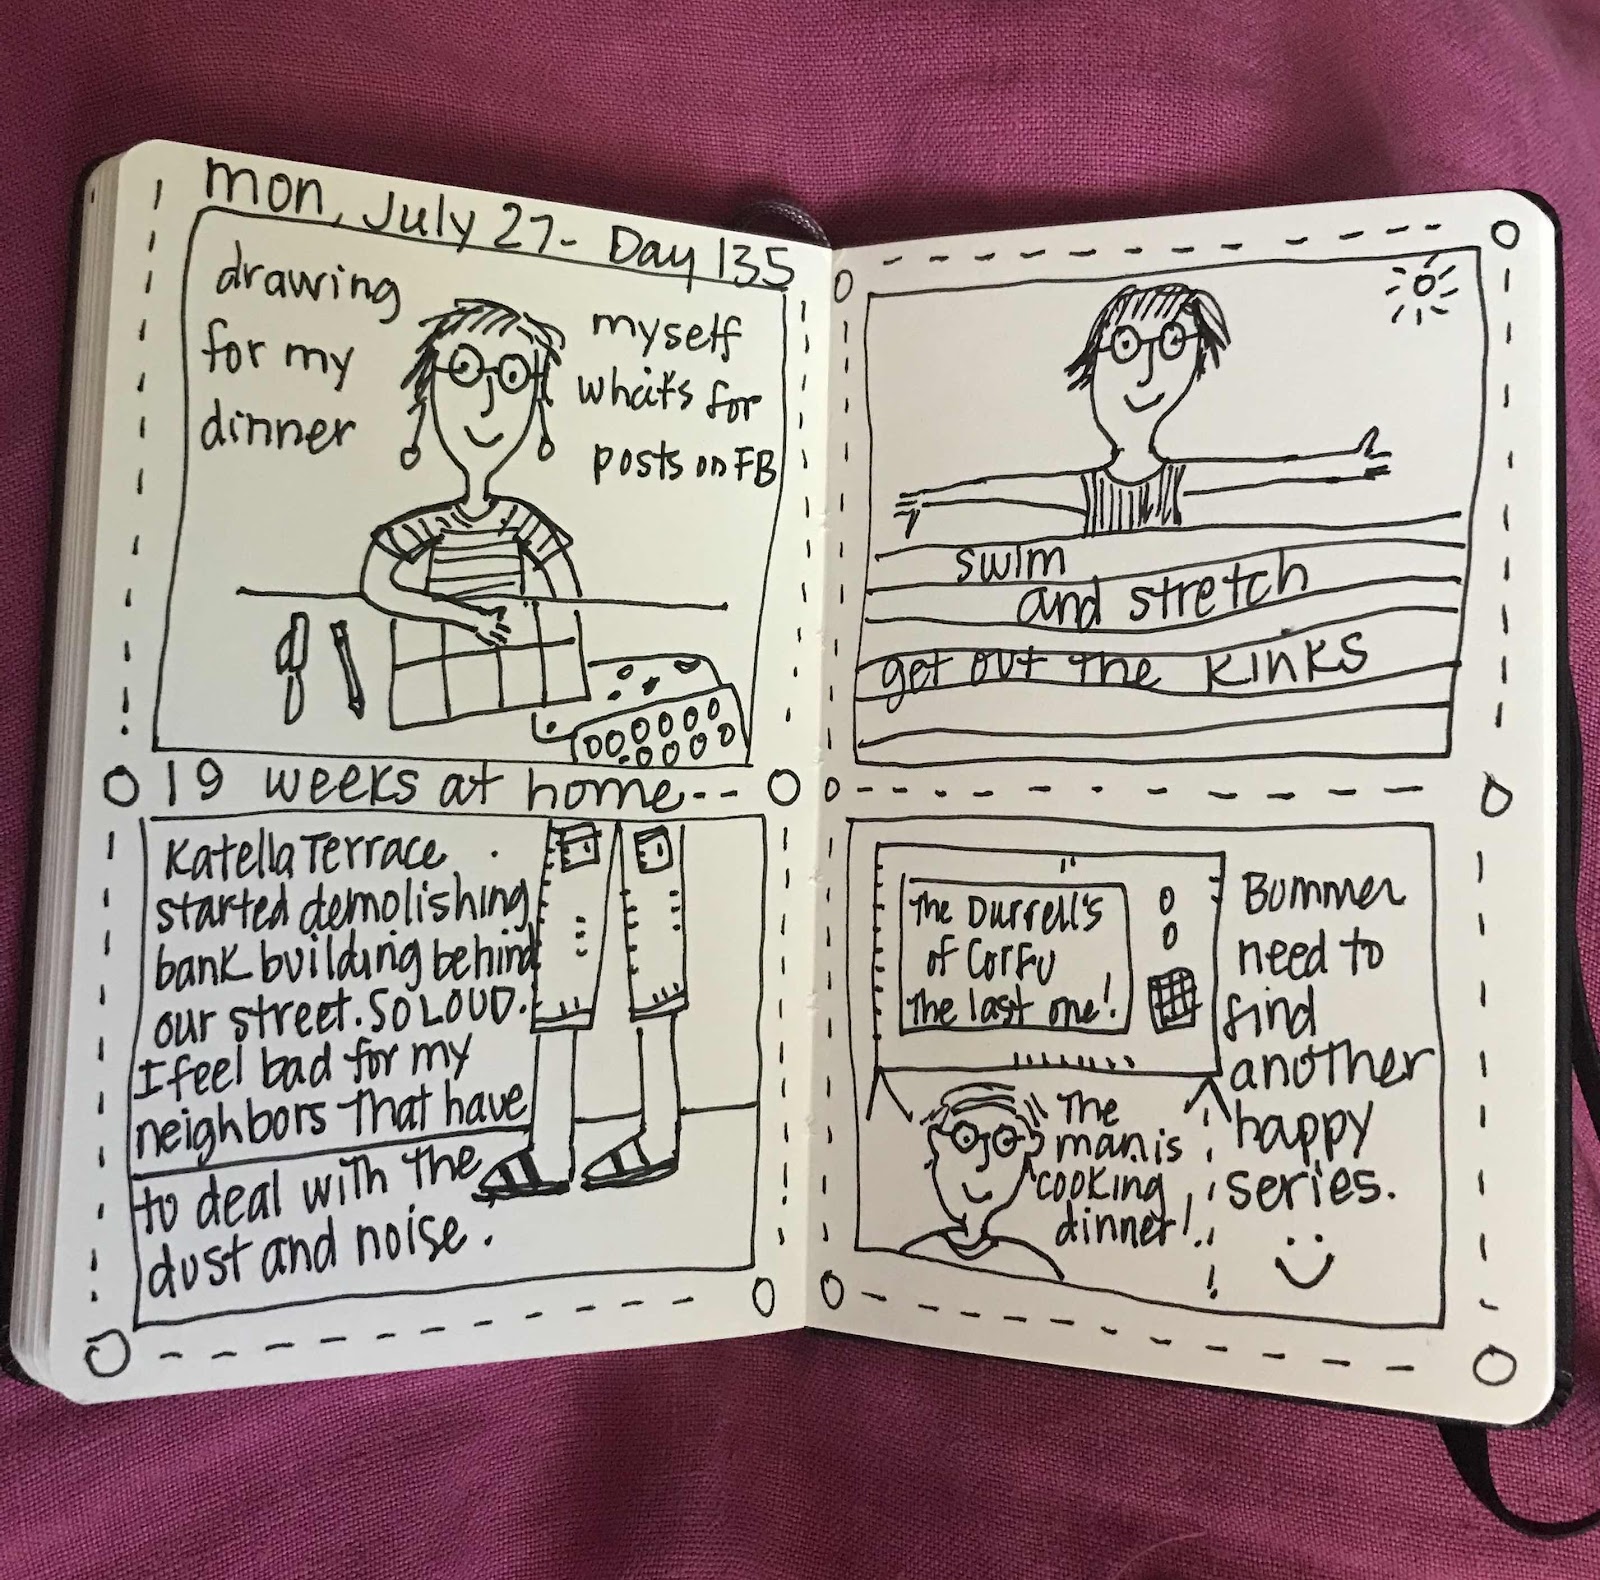 mon, July 27- Day 135
drawing
for my
dinner
myself
what's for
posts on FB
19 weeks at home---
Katella Terrace
started demolishing
bank building behind
our street. SO LOUD.
I feel bad for my
neighbors that have
to deal with the
dust and noise.
swim
and stretch
get out the kinks
The Durrell's
of Corfu
the last one!
Bummer
need to
find
another
happy
series.
The
man is
cooking
dinner!